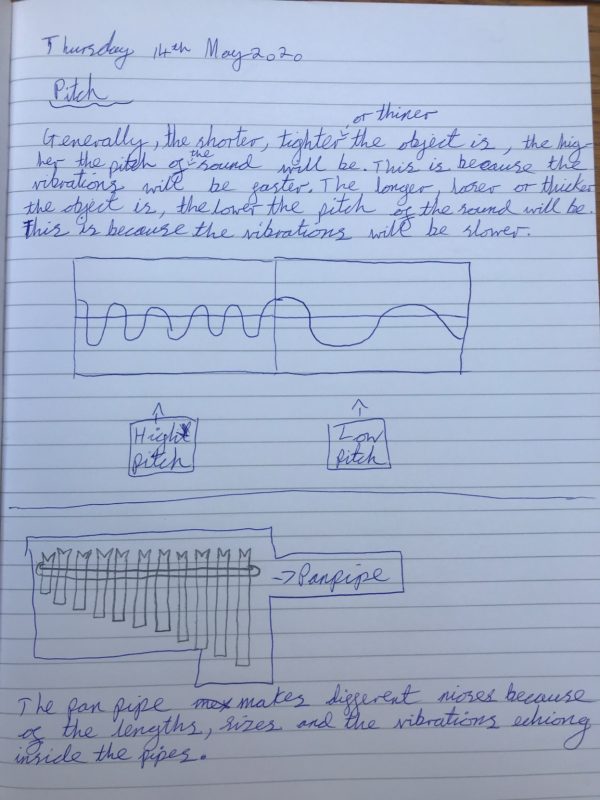 Thursday 14th May 2020
Pitch
or thiner
Generally, the shorter, tighter the object is, the hig-
her the pitch of the sound will be. This is because the
vibrations will be faster. The longer, loser or thicker
the object is, the lower the pitch of the sound will be.
This is because the vibrations will be slower.
High
pitch
Low
pitch
→Panpipe
The pan pipe makes different nioses because
of the lengths, sizes and the vibrations echiong
inside the pipes.